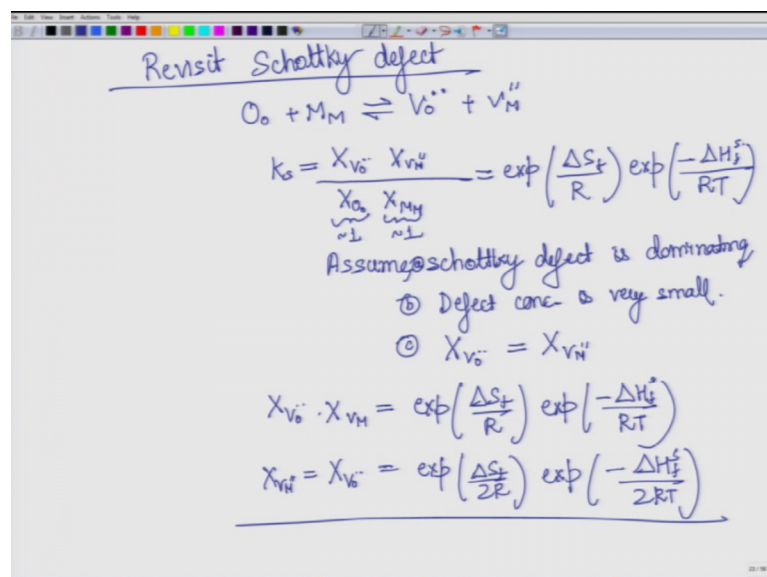 File Edit View Insert Actions Tools Help
Revisit Schottky defect
O₀ + M_M ⇌ V₀•• + V_M''
K_s = X_V₀•• X_V_M'' / X_O₀ X_M_M = exp(ΔS_f/R) exp(-ΔH_f^s/RT)
~1 ~1
Assume, ⓐ schottky defect is dominating
ⓑ Defect conc- is very small.
ⓒ X_V₀•• = X_V_M''
X_V₀•• . X_V_M = exp(ΔS_f/R) exp(-ΔH_f^s/RT)
X_V_M'' = X_V₀•• = exp(ΔS_f/2R) exp(-ΔH_f^s/2RT)